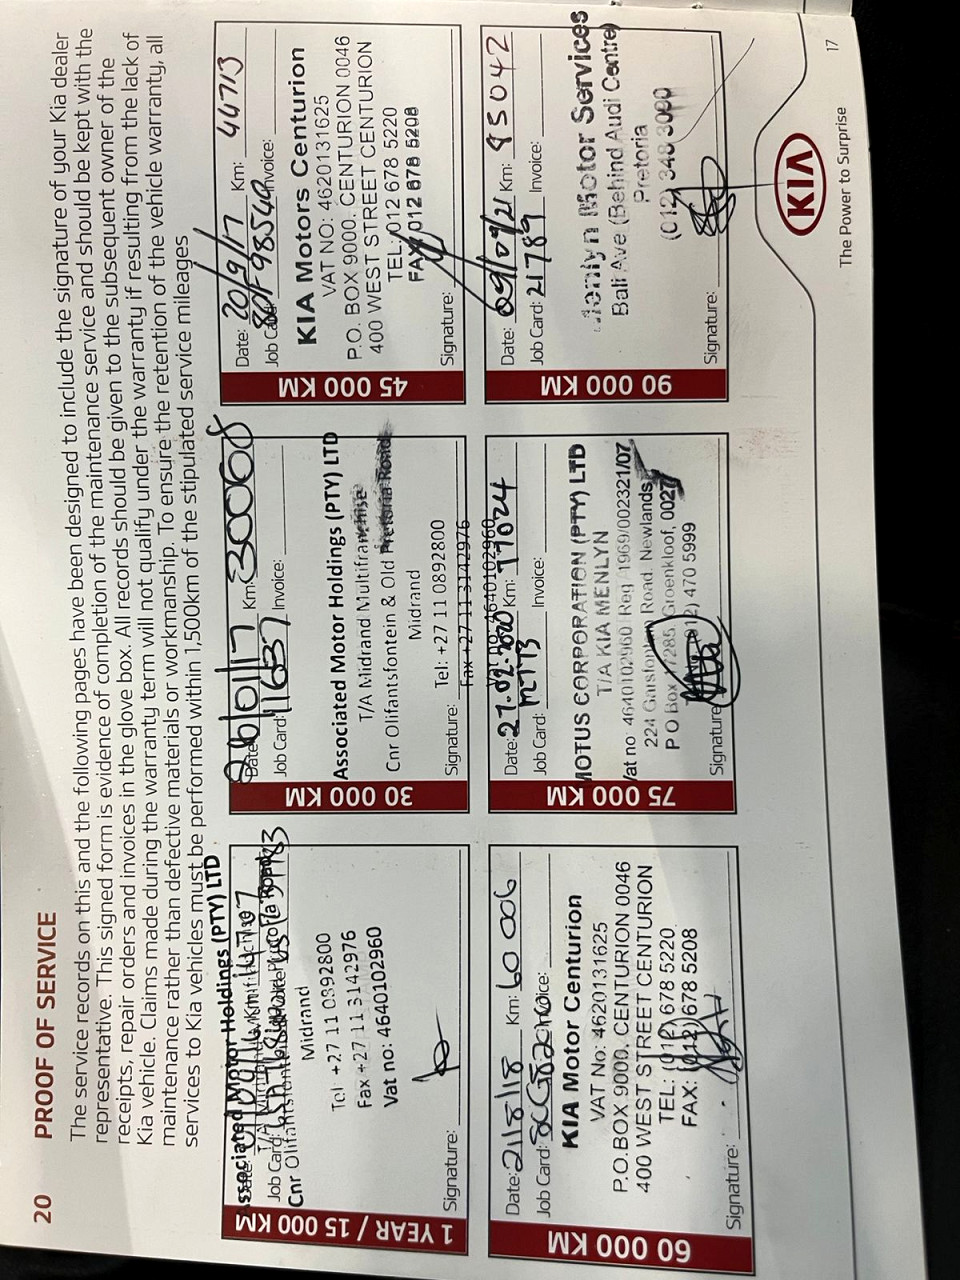 20 PROOF OF SERVICE
The service records on this and the following pages have been designed to include the signature of your Kia dealer
representative. This signed form is evidence of completion of the maintenance service and should be kept with the
receipts, repair orders and invoices in the glove box. All records should be given to the subsequent owner of the
Kia vehicle. Claims made during the warranty term will not qualify under the warranty if resulting from the lack of
maintenance rather than defective materials or workmanship. To ensure the retention of the vehicle warranty, all
services to Kia vehicles must be performed within 1,500km of the stipulated service mileages
1 YEAR / 15 000 KM
Associated Motor Holdings (PTY) LTD
Job Card:
Cnr Olifantsfontein
Midrand
Tel +27 11 0892800
Fax +27 11 3142976
Vat no: 4640102960
Signature:
30 000 KM
Date: Km: 30068
Job Card: 11637 Invoice:
Associated Motor Holdings (PTY) LTD
T/A Midrand Multifranchise
Cnr Olifantsfontein & Old Pretoria Road
Midrand
Tel: +27 11 0892800
Fax +27 11 3142976
Vat no: 4640102960
Signature:
45 000 KM
Date: 20/9/17 Km: 44713
Job Card: Invoice:
KIA Motors Centurion
VAT NO: 4620131625
P.O. BOX 9000. CENTURION 0046
400 WEST STREET CENTURION
TEL: 012 678 5220
FAX: 012 678 5208
Signature:
60 000 KM
Date: 21/8/18 Km: 60 006
Job Card: Invoice:
KIA Motor Centurion
VAT No: 4620131625
P.O.BOX 9000. CENTURION 0046
400 WEST STREET CENTURION
TEL: (012) 678 5220
FAX: (012) 678 5208
Signature:
75 000 KM
Date: 27.02.2020 Km: 77024
Job Card: Invoice:
MOTUS CORPORATION (PTY) LTD
T/A KIA MENLYN
Vat no: 4640102960 Reg 1969/002321/07
224 Garstfontein Road, Newlands
PO Box 7285 Groenkloof, 0027
(012) 470 5999
Signature:
90 000 KM
Date: 09/09/21 Km: 85042
Job Card: 21789 Invoice:
Menlyn Motor Services
Bali Ave (Behind Audi Centre)
Pretoria
(012) 348 3090
Signature:
KIA
The Power to Surprise
17